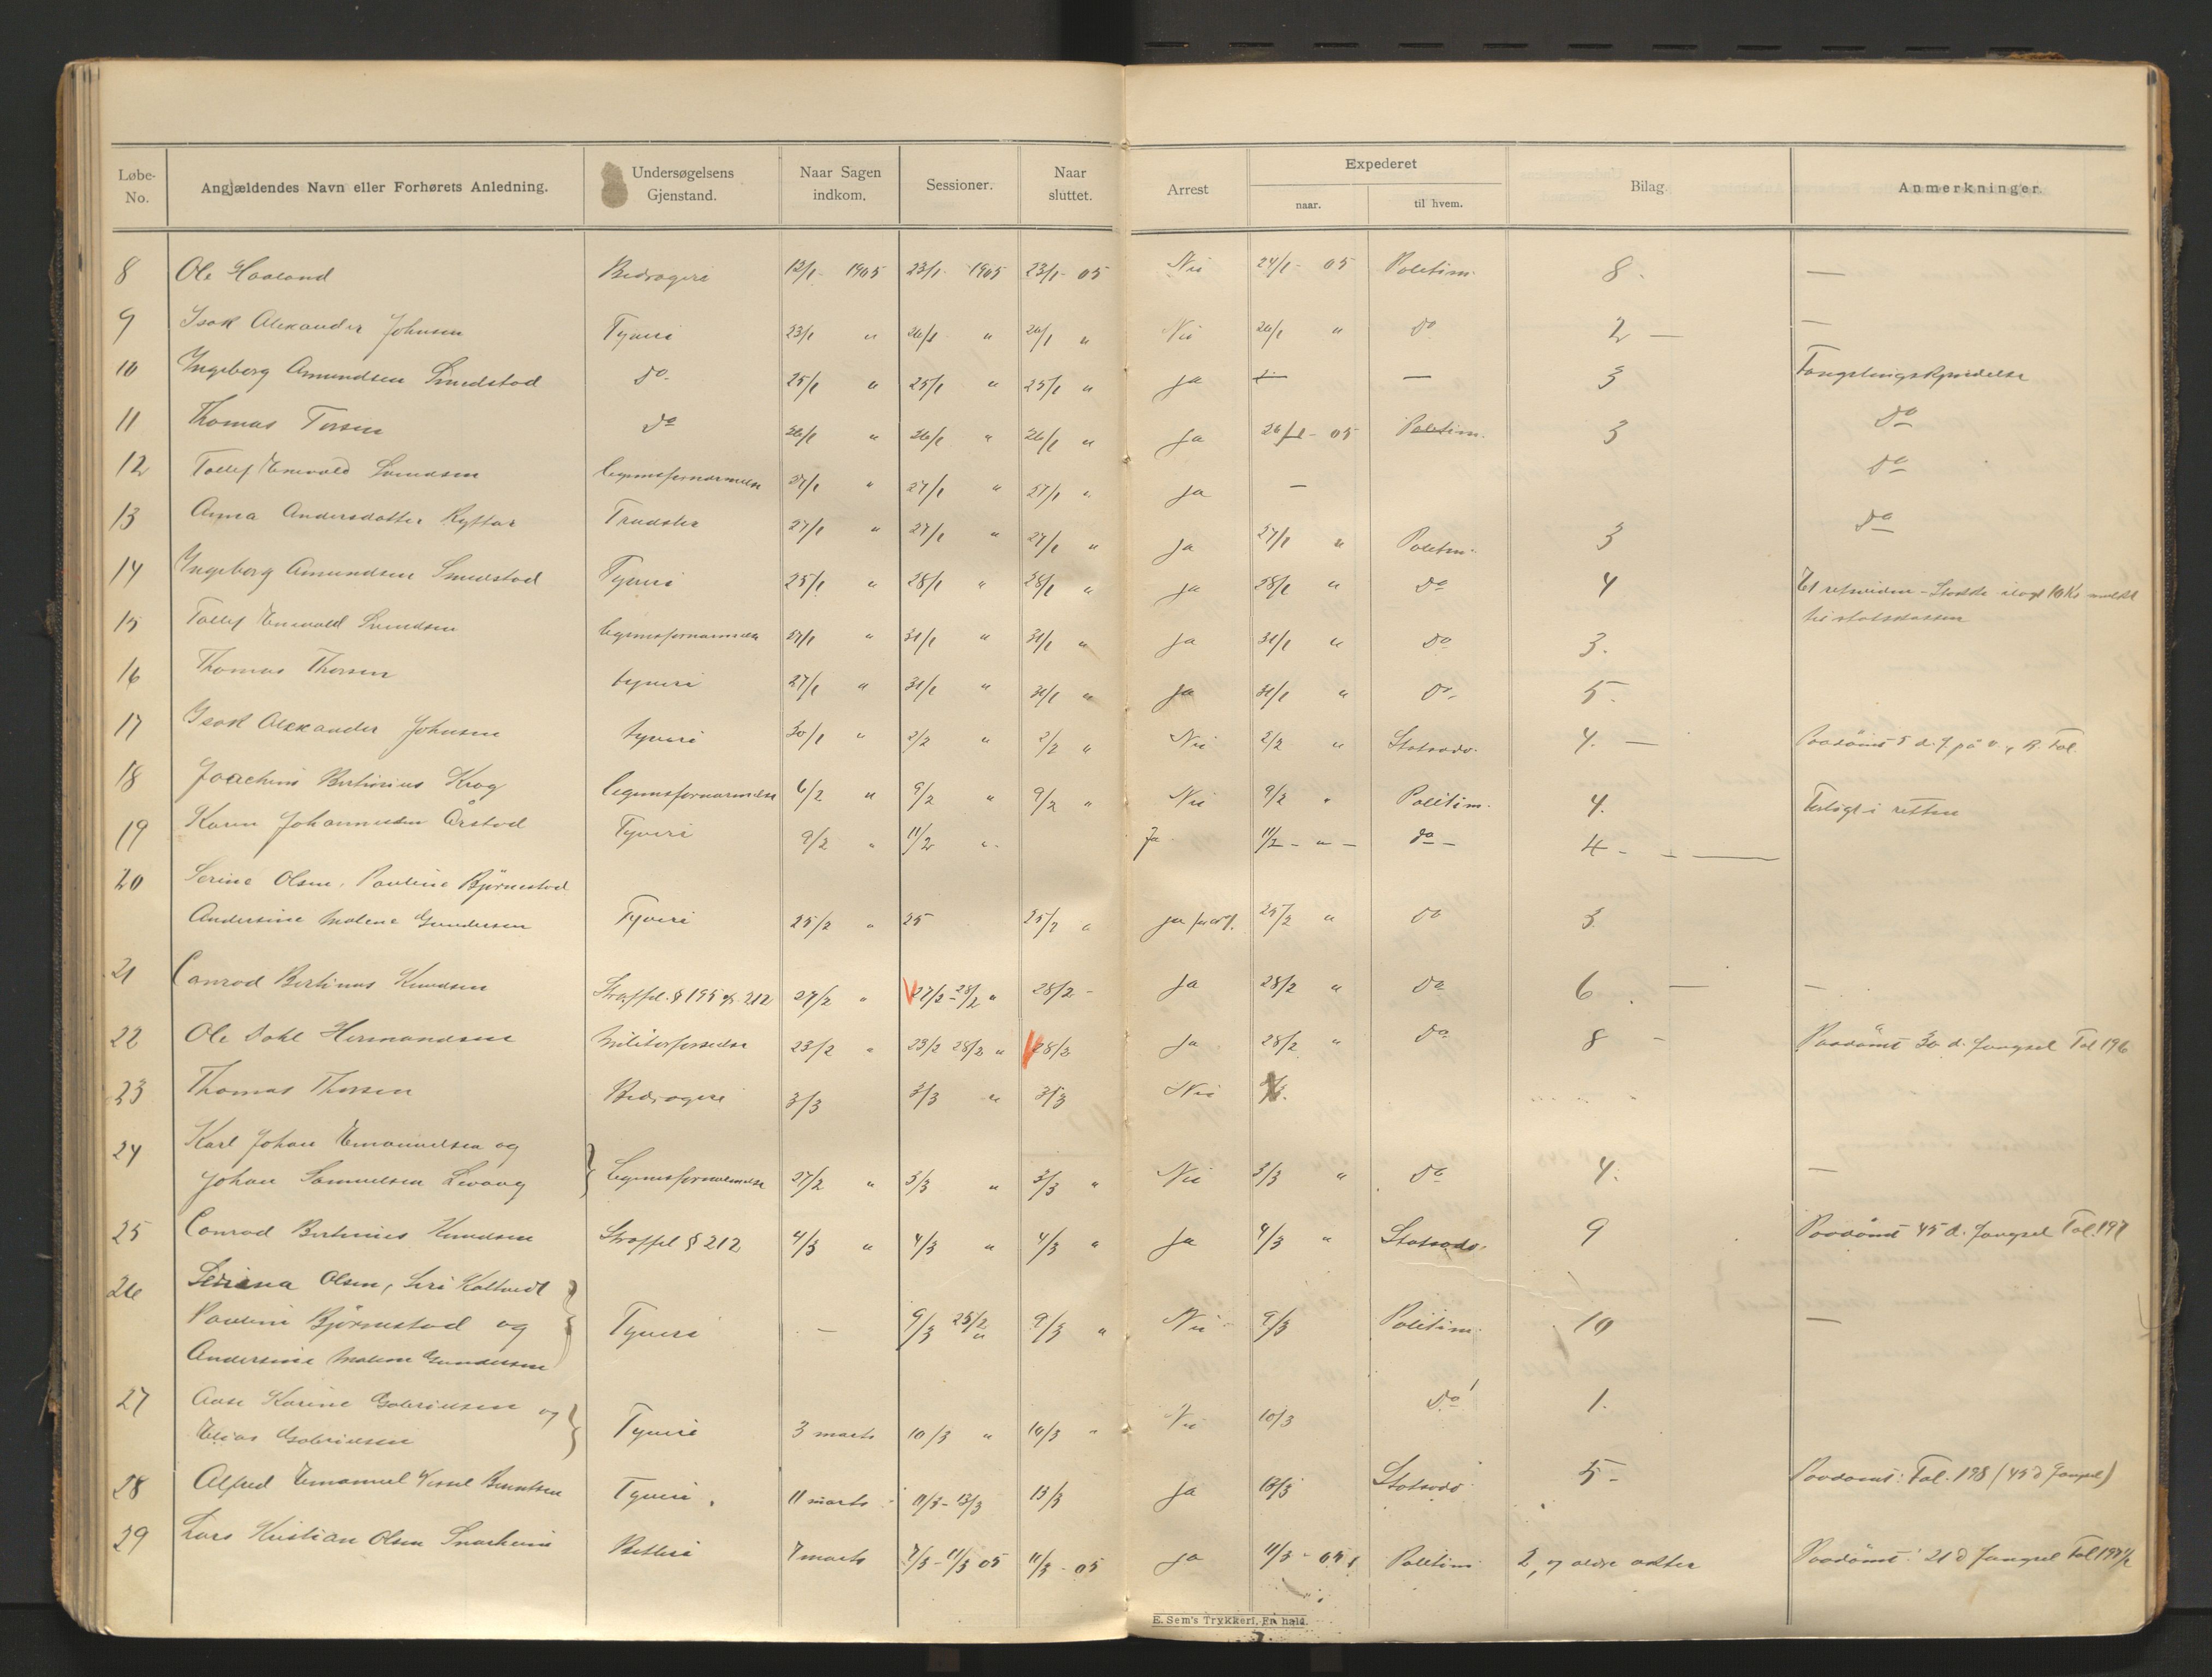 Løbe-No. Angjældendes Navn eller Forhørets Anledning. Undersøgelsens Gjenstand. Naar Sagen indkom. Sessioner. Naar sluttet. Arrest Expederet naar. til hvem. Bilag. Anmerkninger.
8 Ole Haaland Bedrageri 12/1 - 1905 23/1 - 1905 23/1 - 05 Nei 24/1 - 05 Politim. 8. —
9 Isak Alexander Johnsen Tyveri 23/1 " 26/1 " 26/1 " Nei 26/1 " Do 2 — —
10 Ingeborg Amundsen Smedstad Do. 25/1 " 25/1 " 25/1 " ja — 3 Fængslingskjendelse
11 Thomas Torsen Do 26/1 " 26/1 " 26/1 " ja 26/1 - 05 Politim. 3 Do
12 Tollef Enevald Svendsen legemsfornærmelse 27/1 " 27/1 " 27/1 " ja — Do
13 Anna Andersdatter 27/1 " 27/1 " 27/1 " ja 27/1 " Politim. 3 Do
14 Ingeborg Amundsen Smedstad Tyveri 25/1 " 28/1 " 28/1 " ja 28/1 " Do 4 Et retsvidne - ilagt 10 Kr mulkt
til statskassen
15 Tollef Enevald Svendsen legemsfornærmelse 27/1 " 31/1 " 31/1 " ja 31/1 " Do 3.
16 Thomas Thorsen tyveri 27/1 " 31/1 " 31/1 " ja 31/1 " Do. 5.
17 Isak Alexander Johnsen tyveri 30/1 " 2/2 " 2/2 " Nei 2/2 " Statsadv. 4. — Paadømt 5 d. f på v. Fol.
18 Joachim Bertinius Krog legemsfornærmelse 6/2 " 9/2 " 9/2 " Nei 9/2 " Politim. 4. Forligt i retten
19 Karen Johannesen Årstad Tyveri 9/2 " 11/2 " Ja 11/2 - " - do - 4 -
20 Serine Olsen, Pauline Bjørnestad
Andersine Malene Gundersen Tyveri 25/2 " 25 25/2 " ja 25/2 " Do 3
21 Conrad Bertinus Knudsen Straffel. § 195 og 212 27/2 " 27/2 - 28/2 " 28/2 - Ja 28/2 " Do 6 — —
22 Ole Dahl Hermandsen Militærforseelse 23/2 " 23/2 28/2 " 28/2 Ja 28/2 " Do 8 - Paadømt 30 d. fængsel Fol 196
23 Thomas Thorsen Bedrageri 3/3 3/3 " 3/3 Nei
24 Karl Johan Emanuelsen og
Johan Samuelsen legemsfornærmelse 27/2 " 3/3 " 3/3 " Nei 3/3 " Do 4. —
25 Conrad Bertinius Knudsen Straffel § 212 4/3 " 4/3 " 4/3 " Ja 4/3 " Statsadv. 9 Paadømt 45 d. fængsel Fol. 197
26 Olsen, Siri
Pauline Bjørnestad og Tyveri — 9/3 25/2 " 9/3 " Nei 9/3 Politim. 10 —
Andersine Malene Gundersen
27 Aase Karine Gabrielsen og
Elias Gabrielsen Tyveri 3 marts 10/3 " 10/3 " Nei 10/3 Do 1.
28 Alfred Emanuel Berntsen Tyveri. 11 marts 11/3 - 13/3 13/3 Ja 13/3 Statsadv. 5 - Paadømt: Fol. 198 (45 d fængsel)
29 Lars Kristian Olsen Betleri 7 marts 7/3 - 11/3 05 11/3 - 05 ja 11/3 - 05 Politim 2, og ældre akter Paadømt: 21 d fængsel Fol 197 1/2
E. Sem's Trykkeri, Fr.hald.